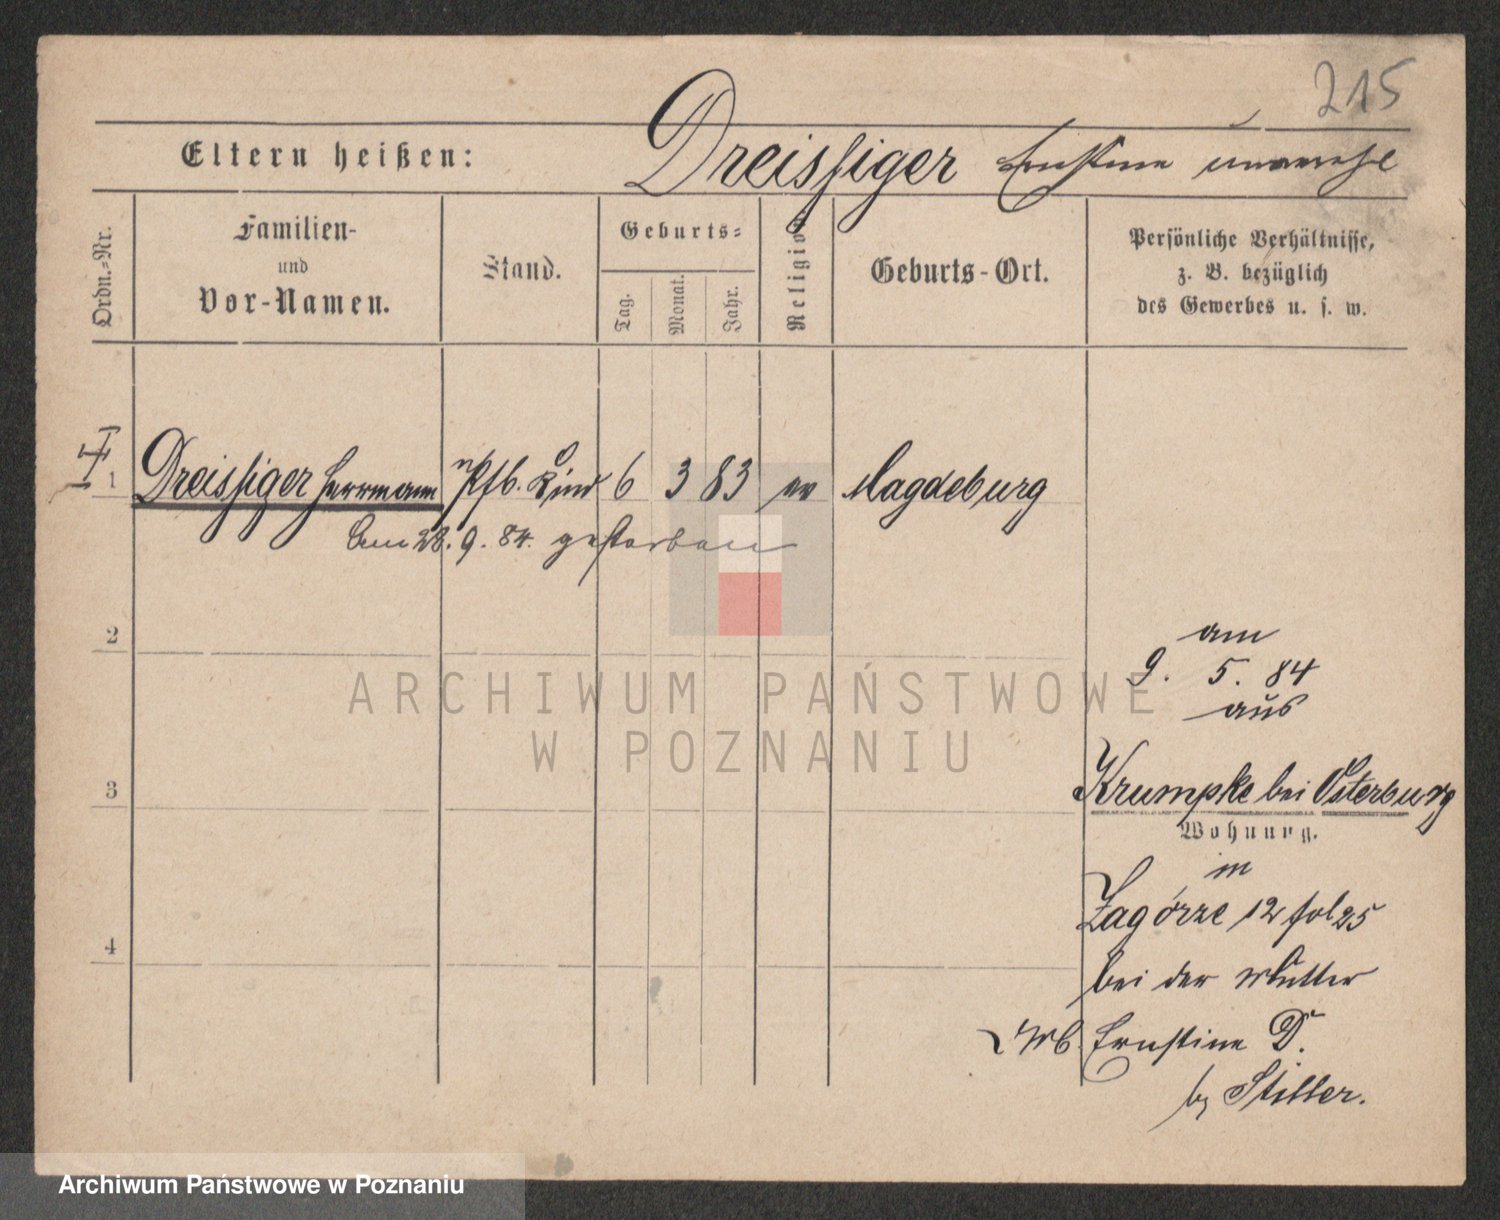 215
Eltern heißen: Dreissiger Ernstine unverehl
Ordn.-Nr.
Familien-
und
Vor-Namen.
Stand.
Geburts-
Tag.
Monat.
Jahr.
Religion
Geburts-Ort.
Persönliche Verhältnisse,
z. B. bezüglich
des Gewerbes u. s. w.
1 Dreissiger Herrmann Kind 6 3 83 ev Magdeburg
Am 28. 9. 84. gestorben
2
3
4
am
9. 5. 84
aus
Krumpke bei Osterburg
Wohnung.
in
Zagórze 12 fol 25
bei der Mutter
Ernstine D.
by Stiller.
ARCHIWUM PAŃSTWOWE
W POZNANIU
Archiwum Państwowe w Poznaniu